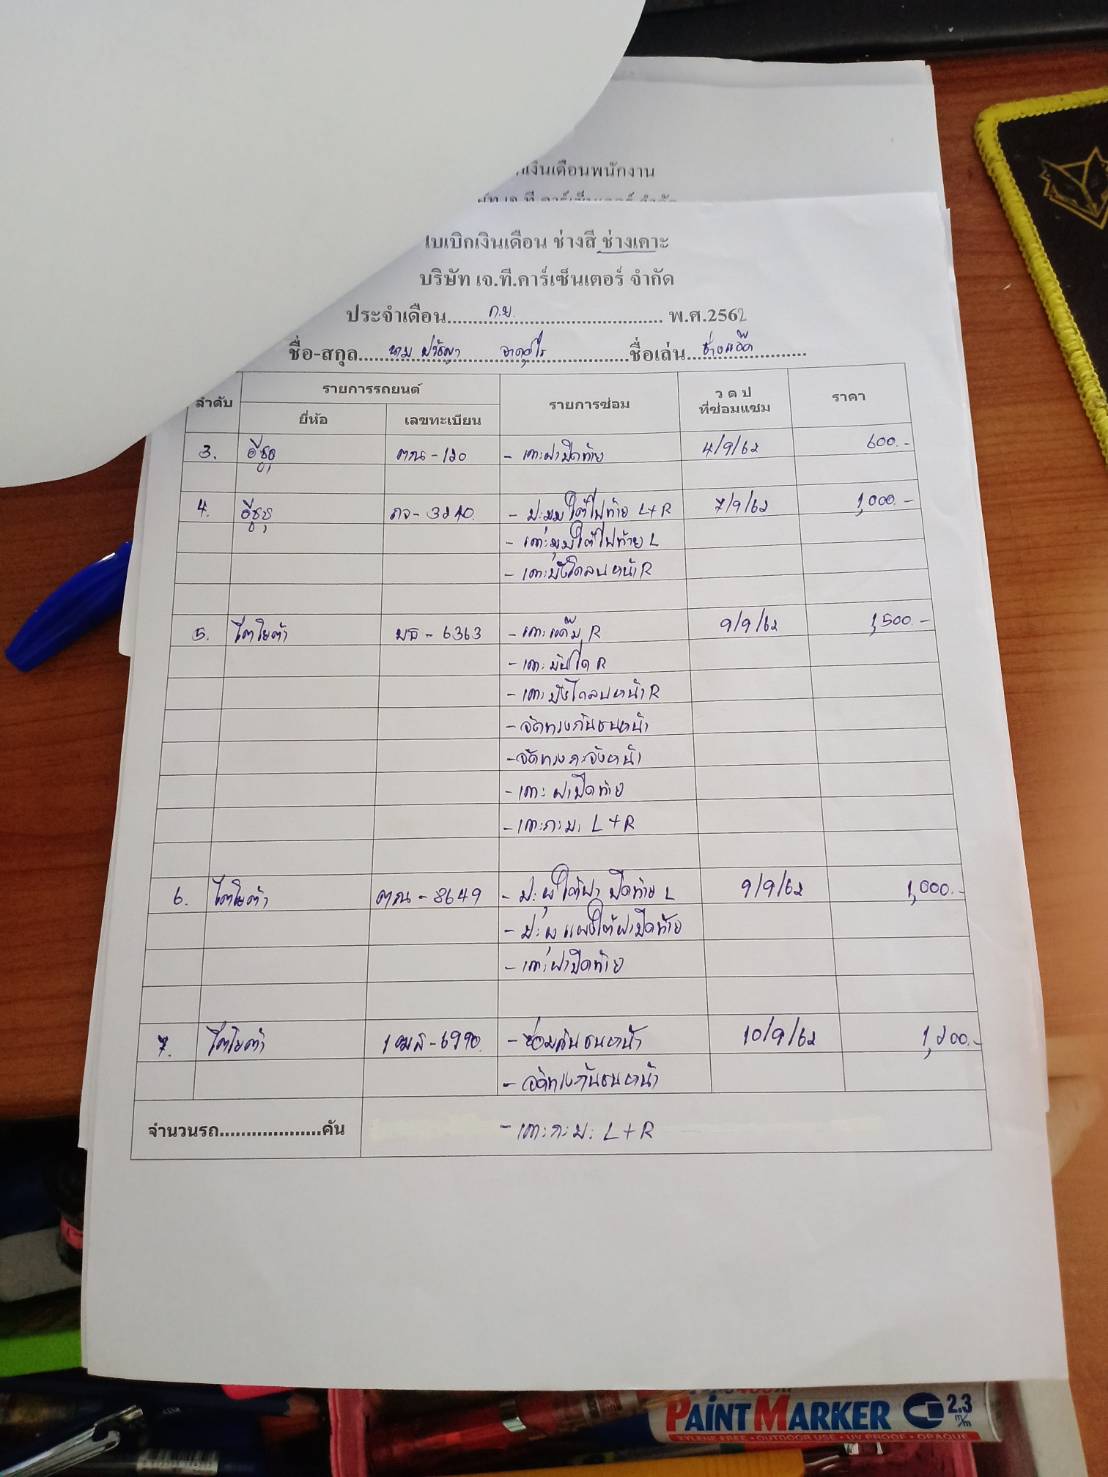 เงินเดือนพนักงาน
ใบเบิกเงินเดือน ช่างสี ช่างเคาะ
บริษัท เจ.ที.คาร์เซ็นเตอร์ จำกัด
ประจำเดือน ก.ย. พ.ศ.2562
ชื่อ-สกุล นาย ชื่อเล่น ช่างแอ๊ด
ลำดับ รายการรถยนต์ รายการซ่อม ว ด ป ที่ซ่อมแซม ราคา
ยี่ห้อ เลขทะเบียน
3. อีซูซุ ฅภน-120 - เคาะฝาปิดท้าย 4/9/62 600.-
4. อีซูซุ 7/9/62 1,000.-
- ป:มุมใต้ไฟท้าย L+R
- เคาะมุมใต้ไฟท้าย L
- เคาะบังโคลนหน้า R
5. โตโยต้า - 6363 - เคาะแค๊ม R 9/9/62 1,500.-
- เคาะบันได R
- เคาะบังโคลนหน้า R
- จัดทรงกันชนหน้า
- จัดทรงกะจังหน้า
- เคาะฝาปิดท้าย
- เคาะกะบะ L+R
6. โตโยต้า - 8649 - ป:ผุใต้ฝาปิดท้าย L 9/9/62 1,000.-
- ป:ผุแผงใต้ฝาปิดท้าย
- เคาะฝาปิดท้าย
7. โตโยต้า - 6990 - ซ่อมกันชนหน้า 10/9/62 1,200.-
- จัดทรงกันชนหน้า
จำนวนรถ...................คัน - เคาะกะบะ L+R
PAINT MARKER 2.3 m/m
XYLENE FREE • OUTDOOR USE • UV PROOF • OPAQUE